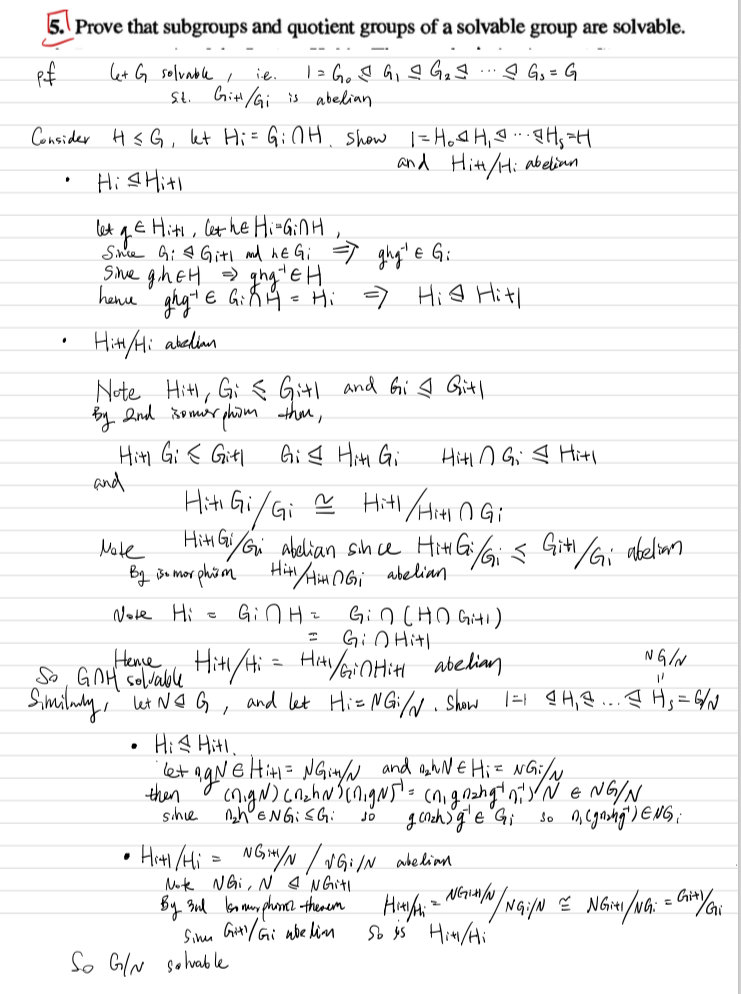 5. Prove that subgroups and quotient groups of a solvable group are solvable.
pf let G solvable, i.e. 1 = G₀ ⊴ G₁ ⊴ G₂ ⊴ ... ⊴ Gₛ = G
st. Gᵢ₊₁/Gᵢ is abelian
Consider H ≤ G, let Hᵢ = Gᵢ∩H. Show 1 = H₀ ⊴ H₁ ⊴ ... ⊴ Hₛ = H
and Hᵢ₊₁/Hᵢ abelian
• Hᵢ ⊴ Hᵢ₊₁
let g ∈ Hᵢ₊₁, let h ∈ Hᵢ = Gᵢ∩H,
Since Gᵢ ⊴ Gᵢ₊₁ and h ∈ Gᵢ ⇒ ghg⁻¹ ∈ Gᵢ
Sine g.h ∈ H ⇒ ghg⁻¹ ∈ H
hence ghg⁻¹ ∈ Gᵢ∩H = Hᵢ ⇒ Hᵢ ⊴ Hᵢ₊₁
• Hᵢ₊₁/Hᵢ abelian
Note Hᵢ₊₁, Gᵢ ≤ Gᵢ₊₁ and Gᵢ ⊴ Gᵢ₊₁
By 2nd isomorphism thm,
Hᵢ₊₁ Gᵢ ≤ Gᵢ₊₁ Gᵢ ⊴ Hᵢ₊₁ Gᵢ Hᵢ₊₁ ∩ Gᵢ ⊴ Hᵢ₊₁
and
Hᵢ₊₁ Gᵢ/Gᵢ ≅ Hᵢ₊₁/Hᵢ₊₁ ∩ Gᵢ
Note Hᵢ₊₁Gᵢ/Gᵢ abelian since Hᵢ₊₁Gᵢ/Gᵢ ≤ Gᵢ₊₁/Gᵢ abelian
By isomorphism Hᵢ₊₁/Hᵢ₊₁∩Gᵢ abelian
Note Hᵢ = Gᵢ∩H = Gᵢ∩(H∩Gᵢ₊₁)
= Gᵢ∩Hᵢ₊₁
Hence Hᵢ₊₁/Hᵢ = Hᵢ₊₁/Gᵢ∩Hᵢ₊₁ abelian
So G∩H solvable
NG/N
"
Similarly, let N ⊴ G, and let Hᵢ = NGᵢ/N. Show 1=1 ⊴ H₁ ⊴ ... ⊴ Hₛ = G/N
• Hᵢ ⊴ Hᵢ₊₁.
let n₁gN ∈ Hᵢ₊₁ = NGᵢ₊₁/N and n₂hN ∈ Hᵢ = NGᵢ/N
then (n₁gN)(n₂hN)(n₁gN)⁻¹ = (n₁gn₂hg⁻¹n₁⁻¹)N ∈ NG/N
since n₂h ∈ NGᵢ ≤ Gᵢ so g(n₂h)g⁻¹ ∈ Gᵢ so n₁(gn₂hg⁻¹) ∈ NGᵢ
• Hᵢ₊₁/Hᵢ = NGᵢ₊₁/N / NGᵢ/N abelian
Note NGᵢ, N ⊴ NGᵢ₊₁
By 3rd isomorphism theorem Hᵢ₊₁/Hᵢ = NGᵢ₊₁/N / NGᵢ/N ≅ NGᵢ₊₁/NGᵢ = Gᵢ₊₁/Gᵢ
Since Gᵢ₊₁/Gᵢ abelian So is Hᵢ₊₁/Hᵢ
So G/N solvable